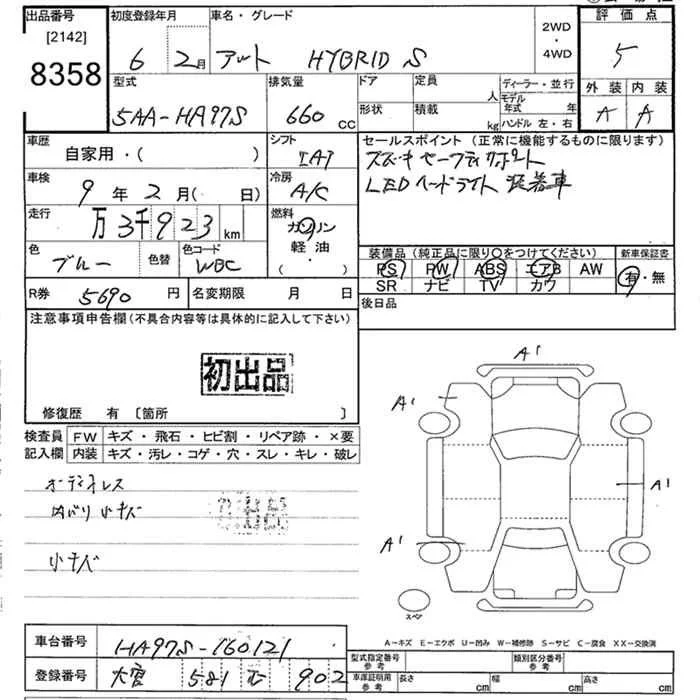 出品番号 初度登録年月 車名・グレード 2WD・4WD 評価点
[2142]
8358 6 2月 アルト HYBRID S 5
型式 排気量 ドア 定員 人 ディーラー・並行 外装 内装
5AA-HA97S 660 cc 形状 積載 kg モデル年式 年 ハンドル 左・右 A A
車歴 自家用・( ) シフト IAT セールスポイント(正常に機能するものに限ります)
スズキセーフティサポート
LEDヘッドライト 装着車
車検 9年2月(日) 冷房 A/C
走行 万3千923km 燃料 ガソリン
軽・油
・( )
色 ブルー 色替 色コード WBC
装備品(純正品に限り○をつけてください) 新車保証書
PS PW ABS エアB AW 有・無
SR ナビ TV カワ
R券 5690円 名変期限 月 日 後日品
注意事項申告欄(不具合内容等は具体的に記入して下さい)
初出品
修復歴 有 [箇所 ]
検査員記入欄 FW キズ・飛石・ヒビ割・リペア跡・×要
内装 キズ・汚レ・コゲ・穴・スレ・キレ・破レ
オーディオレス
内バリ小キズ
小キズ
A1
A1
A1
A1
スペア
A-キズ E-エクボ U-凹み W-補修跡 S-サビ C-腐食 XX-交換済
車台番号 HA97S-160121
型式指定番号 参考 類別区分番号 参考
登録番号 大宮 581 む 902
車庫証明用 参考 長さ cm 幅 cm 高さ cm